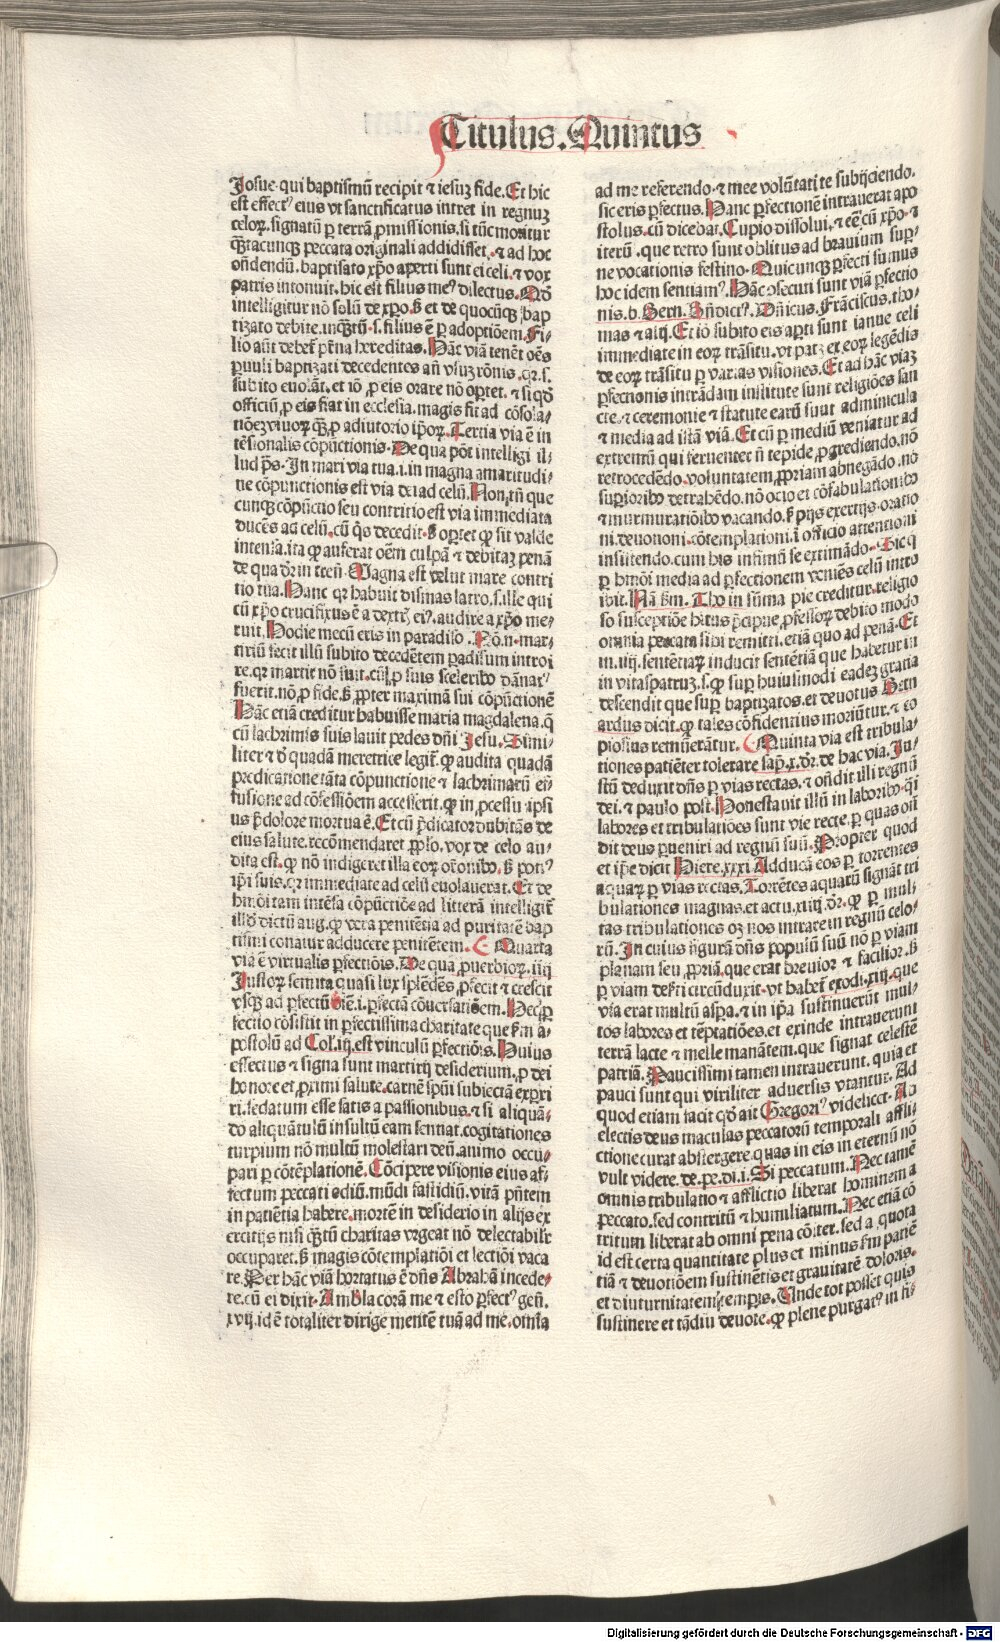 Titulus. Quintus
Josue· qui baptismū recipit ⁊ iesuz fide. Et hic
est effectꝰ eius vt sanctificatus intret in regnuz
celoꝝ. signatū ꝑ terrā ꝓmissionis. si tūc moritur
quātacunqꝫ peccata originali addidisset. ⁊ ad hoc
oñdendū. baptisato xp̄o aperti sunt ei celi. ⁊ vox
patris intonuit. hic est filius meꝰ dilectus. Qḋ
intelligitur nō solū de xp̄o. ß et de quocūqꝫ bap
tizato debite. inqꝫtū· s. filius ē ꝑ adoptiōem. Fi⸗
lio aūt debeť pr̄na hereditas. Hāc viā tenēt oēs
ꝑuuli baptizati decedentes añ vsuz rōnis. qꝛ. s.
subito euolāt. et iō ꝓ eis orare nō oꝑtet. ⁊ si qḋ
officiū ꝓ eis fiat in ecclesia. magis fit ad cōsola⸗
tiōez viuoꝝ qꝫ ꝓ adiutorio ip̄oꝝ. Tertia via ē in
tēsionalis cōpūctionis· De qua pōt intelligi il⸗
lud ps̄· In mari via tua. i. in magna amaritudi⸗
ne cōpunctionis est via dei ad celū. Non tñ que
cunqꝫ cōpūctio seu contritio est via immediata
ducēs ad celū. cū qs̄ decedit. ß oꝑtet ꝙ sit valde
intensa. ita ꝙ auferat oēm culpā ⁊ debitaz penā
de qua dr̄ in treñ· Magna est velut mare contri
tio tua. Hanc qꝛ habuit dismas latro. s. ille qui
cū xp̄o crucifixus ē a dextr̄ eiꝰ. audire a xp̄o me⸗
ruit. Hodie mecū eris in paradiso. Nō. n· mar⸗
tiriū fecit illū subito decedētem ꝑadisum introi
re. qꝛ martir nō fuit. cū ꝓ suis sceleribꝰ dānatꝰ
fuerit. nō ꝓ fide. ß ꝓpter maximā sui cōpūctionē
Hāc etiā creditur habuisse maria magdalena. q̄
cū lachrimis suis lauit pedes dñi Jesu. Simi⸗
liter ⁊ ḋ quadā meretrice legiť. ꝙ audita quadā
predicatione tāta cōpunctione ⁊ lachrimarū eñ
fusione ad cōfessiōem accesserit. ꝙ in ꝓcessu ipsi
us p̄ dolore mortua ē. Et cū p̄dicator dubitās de
eius salute. recōmendaret ꝓplo. vox de celo au⸗
dita est. ꝙ nō indigeret illa eoꝝ or̄onibꝰ. ß potiꝰ
ip̄i suis. qꝛ immediate ad celū euolauerat. Et de
hm̄oi tam intēsa cōpūctiōe ad litterā intelligiť
illḋ dictū aug. ꝙ vera penitētia ad puritatē bap
tismi conatur adducere penitētem. Quarta
via ē virtualis ꝑfectiōis. De qua ꝓuerbioꝝ. iiij
Justoꝝ semita quasi lux splēdēs ꝓfecit ⁊ crescit
vsqꝫ ad ꝑfectū diē. i. ꝑfectā cōuersatiōem. Hec ꝑ
fectio cōsistit in ꝑfectissima charitate que ßm a⸗
postolū ad Col. iij. est vinculū ꝑfectiōis. Huius
effectus ⁊ signa sunt martirij desiderium. ꝓ dei
honore et ꝓximi salute. carnē spūi subiectā exꝑri
ri. sedatum esse satis a passionibus. ⁊ si aliquā⸗
do aliquātulū insultū eam sentiat. cogitationes
turpium nō multū molestari deū. animo occu⸗
pari ꝑ cōtēplationē. Cōcipere visionis eius af⸗
fectum peccati odiū. mūdi fastidiū. vitā pñtem
in patiētia habere. mortē in desiderio in alijs ex
ercitijs nisi quātū charitas vrgeat nō delectabilr̄
occuparet. ß magis cōtemplatiōi et lectiōi vaca
re. Per hāc viā hortatus ē dñs Abrahā incede⸗
re. cū ei dixit· Ambula corā me ⁊ esto ꝑfectꝰ geñ.
xvij. id ē totaliter dirige mentē tuā ad me. omīa
ad me referendo· ⁊ mee volūtati te subijciendo.
sic eris ꝑfectus. Hanc ꝑfectionē intrauerat apo
stolus. cū dicebat. Cupio dissolui. ⁊ eē cū xp̄o· ⁊
iterū. que retro sunt oblitus ad brauium sup⸗
ne vocationis festino. Quicunqꝫ ꝑfecti sumus
hoc idem sentiamꝰ. Hāc ꝯsecuti sunt viā ꝑfectio
nis. b. Bern. Bñdictꝰ. Dñicus. Frāciscus. tho⸗
mas ⁊ alij. Et iō subito eis aꝑti sunt ianue celi
immediate in eoꝝ trāsitu. vt patꝫ ex eoꝝ legēdis
de eoꝝ trāsitu ꝑ varias visiones. Et ad hāc viaz
ꝑfectionis intrādam institute sunt religiōes san
cte. ⁊ ceremonie ⁊ statute earū sunt adminicula
⁊ media ad illā viā. Et cū ꝑ mediū veniatur ad
extremū qui feruenter ñ tepide ꝓgrediendo. nō
retrocedēdo. voluntatem ꝓpriam abnegādo. nō
suꝑioribꝰ detrahēdo. nō ocio et cōfabulationibꝰ
⁊ murmuratiōibꝰ vacando. ß pijs exercijs. oratio
ni. deuotioni. cōtemplationi. ī officio attentioni
insistendo. cum his infimū se extimādo· Hic q̄
ꝑ hm̄oi media ad ꝑfectionem veniēs celū intro
ibit. Nā ßm. Tho in sūma pie creditur. religio
so susceptiōe hītus p̄cipue ꝓfessoꝝ debito modo
omnia peccata sibi remitti. etiā quo ad penā. Et
in. iiij. sentētiaꝝ inducit sentētiā que habetur in
in vitaspatruz. s. ꝙ suꝑ huiusmodi eadez gratia
descendit que suꝑ baptizatos. et deuotus Bern
ardus dicit. ꝙ tales cōfidentius moriūtur. ⁊ co
piosius remūerātur. Quinta via est tribula⸗
tiones patiēter tolerare sap̄. x. dr̄. de hac via. Ju⸗
stū deduxit dñs ꝑ vias rectas. ⁊ oñdit illi regnū
dei. ⁊ paulo post. Honestauit illū in laboribꝰ. qꝛ
labores et tribulatiōes sunt vie recte. ꝑ quas oñ
dit deus ꝑueniri ad regnū suū. Propter quod
et ip̄e dicit Hiere. xxxi Adducā eos ꝑ torrentes
aquaꝝ ꝑ vias rectas. Torrētes aquarū signāt tri
bulationes magnas. et actu. xiiij dr̄. ꝙ ꝑ mul⸗
tas tribulationes oꝫ nos intrare in regnū celo⸗
rū. In cuius figurā dñs populū suū nō ꝑ viam
planam seu ꝓpriā. que erat breuior ⁊ facilior. ß
ꝑ viam deserti circūduxit· vt habeť exodi. xiij. que
via erat multū asꝑa. ⁊ in ip̄a sustinuerūt mul⸗
tos labores et tēptatiōes. et exinde intrauerunt
terrā lacte ⁊ melle manātem. que signat celestē
patriā. Paucissimi tamen intrauerunt. quia et
pauci sunt qui viriliter aduersis vtantur. Ad
quod etiam facit qḋ ait Gregoriꝰ videlicet. Ab
electis deus maculas peccatorū temporali affli⸗
ctione curat abstergere. quas in eis in eternū nō
vult videre. de. pe. di. i. Si peccatum. Nec tamē
omnis tribulatio ⁊ afflictio liberat hominem a
peccato. sed contritū ⁊ humiliatum. Nec etiā cō
tritum liberat ab omni pena cōiter. sed a quota
id est certa quantitate plus et minus ßm patiē
tiā ⁊ deuotiōem sustinētis et grauitatē doloris.
et diuturnitatem tempis. Unde tot posset quis
sustinere et tādiu deuote. ꝙ plene purgatꝰ in fi⸗
Digitalisierung gefördert durch die Deutsche Forschungsgemeinschaft - DFG